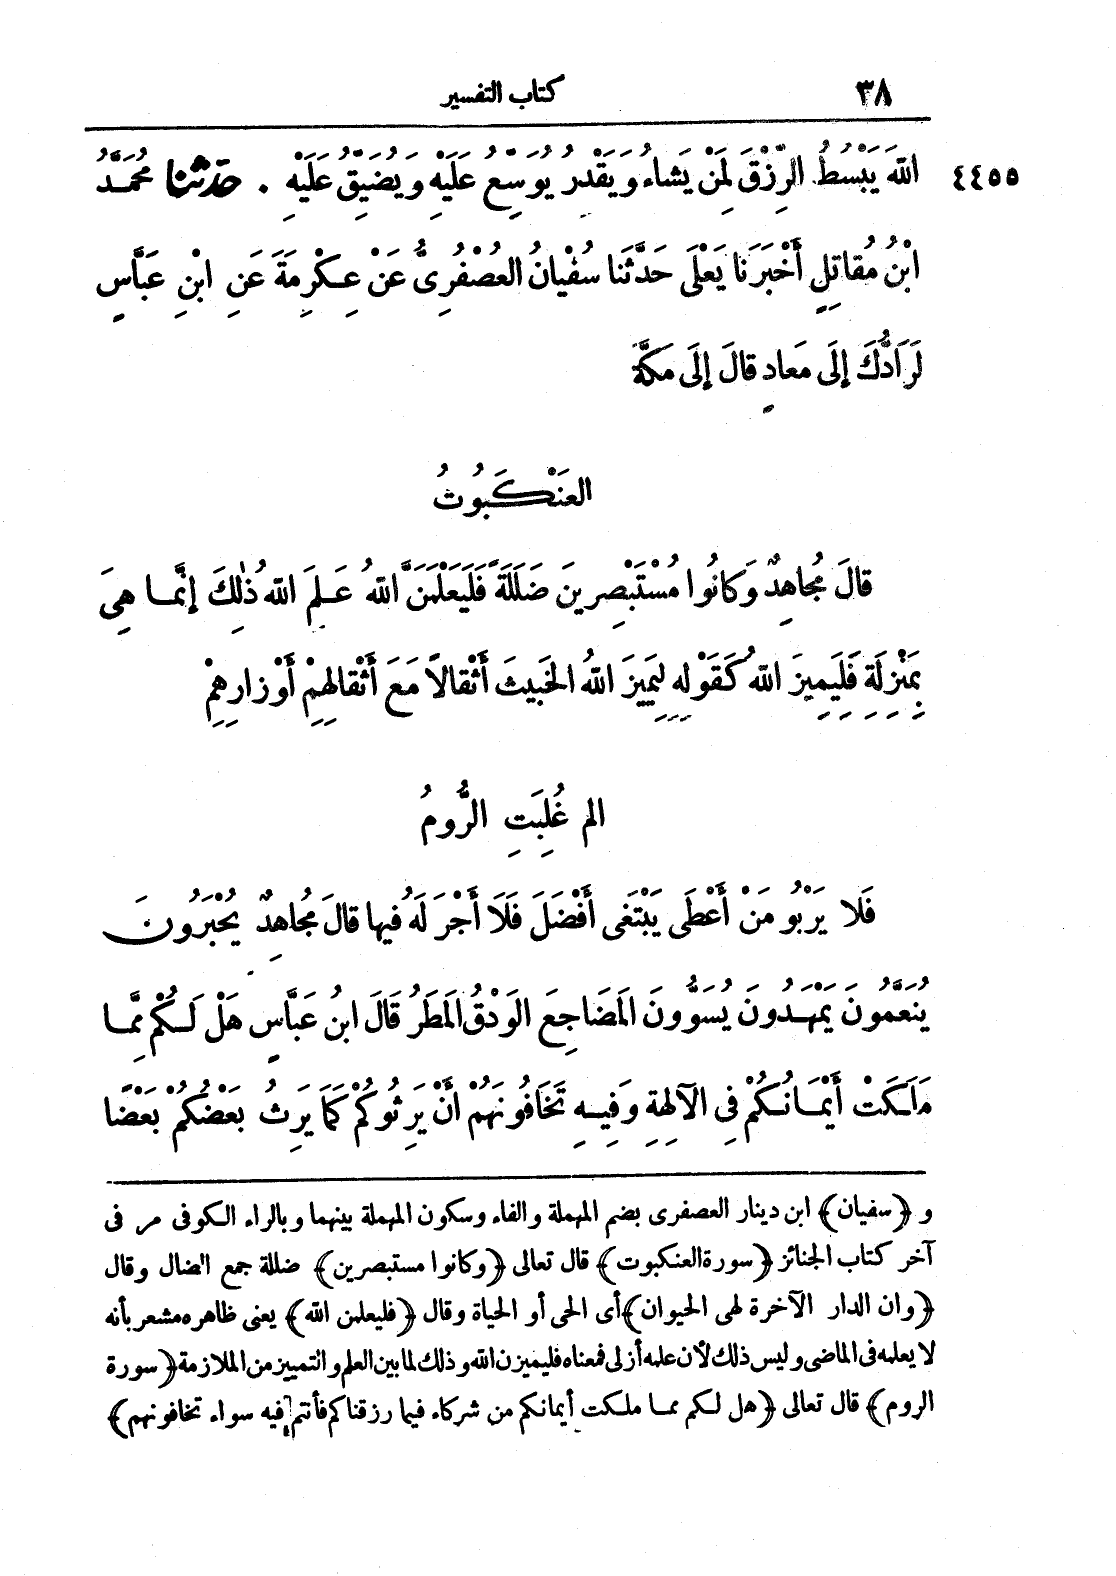 ٣٨ كتاب التفسير
٤٤٥٥ اللهَ يَبْسُطُ الرِّزْقَ لِمَنْ يَشَاءُ وَيَقْدِرُ يُوَسِّعُ عَلَيْهِ وَيُضَيِّقُ عَلَيْهِ . حَدَّثَنَا مُحَمَّدُ
ابْنُ مُقَاتِلٍ أَخْبَرَنَا يَعْلَى حَدَّثَنَا سُفْيَانُ العُصْفُرِىُّ عَنْ عِكْرِمَةَ عَنِ ابْنِ عَبَّاسٍ
لَرَادُّكَ إِلَى مَعَادٍ قَالَ إِلَى مَكَّةَ
العَنْكَبُوتُ
قَالَ مُجَاهِدٌ وَكَانُوا مُسْتَبْصِرِينَ ضَلَلَةً فَلَيَعْلَمَنَّ اللهُ عَلِمَ اللهُ ذٰلِكَ إِنَّمَا هِىَ
بِمَنْزِلَةِ فَلَيَمِيزَ اللهُ كَقَوْلِهِ لِيَمِيزَ اللهُ الخَبِيثَ أَثْقَالاً مَعَ أَثْقَالِهِمْ أَوْزَارِهِمْ
الم غُلِبَتِ الرُّومُ
فَلَا يَرْبُو مَنْ أَعْطَى يَبْتَغِى أَفْضَلَ فَلَا أَجْرَ لَهُ فِيهَا قَالَ مُجَاهِدٌ يُحْبَرُونَ
يُنَعَّمُونَ يَمْهَدُونَ يُسَوُّونَ المَضَاجِعَ الوَدْقُ المَطَرُ قَالَ ابنُ عَبَّاسٍ هَلْ لَكُمْ مِمَّا
مَلَكَتْ أَيْمَانُكُمْ فِى الآلِهَةِ وَفِيهِ تَخَافُونَهُمْ أَنْ يَرِثُوكُمْ كَمَا يَرِثُ بَعْضُكُمْ بَعْضًا
و ﴿سفيان﴾ ابن دينار العصفرى بضم المهملة والفاء وسكون المهملة بينهما وبالراء الكوفى مر فى
آخر كتاب الجنائز ﴿سورة العنكبوت﴾ قال تعالى ﴿وكانوا مستبصرين﴾ ضللة جمع الضال وقال
﴿وان الدار الآخرة لهى الحيوان﴾ أى الحى أو الحياة وقال ﴿فليعلمن الله﴾ يعنى ظاهره مشعر بأنه
لا يعلمه فى الماضى وليس ذلك لأن علمه أزلى فمعناه فليميزن الله وذلك لما بين العلم والتمييز من الملازمة ﴿سورة
الروم﴾ قال تعالى ﴿هل لكم مما ملكت أيمانكم من شركاء فيما رزقناكم فأنتم فيه سواء تخافونهم﴾